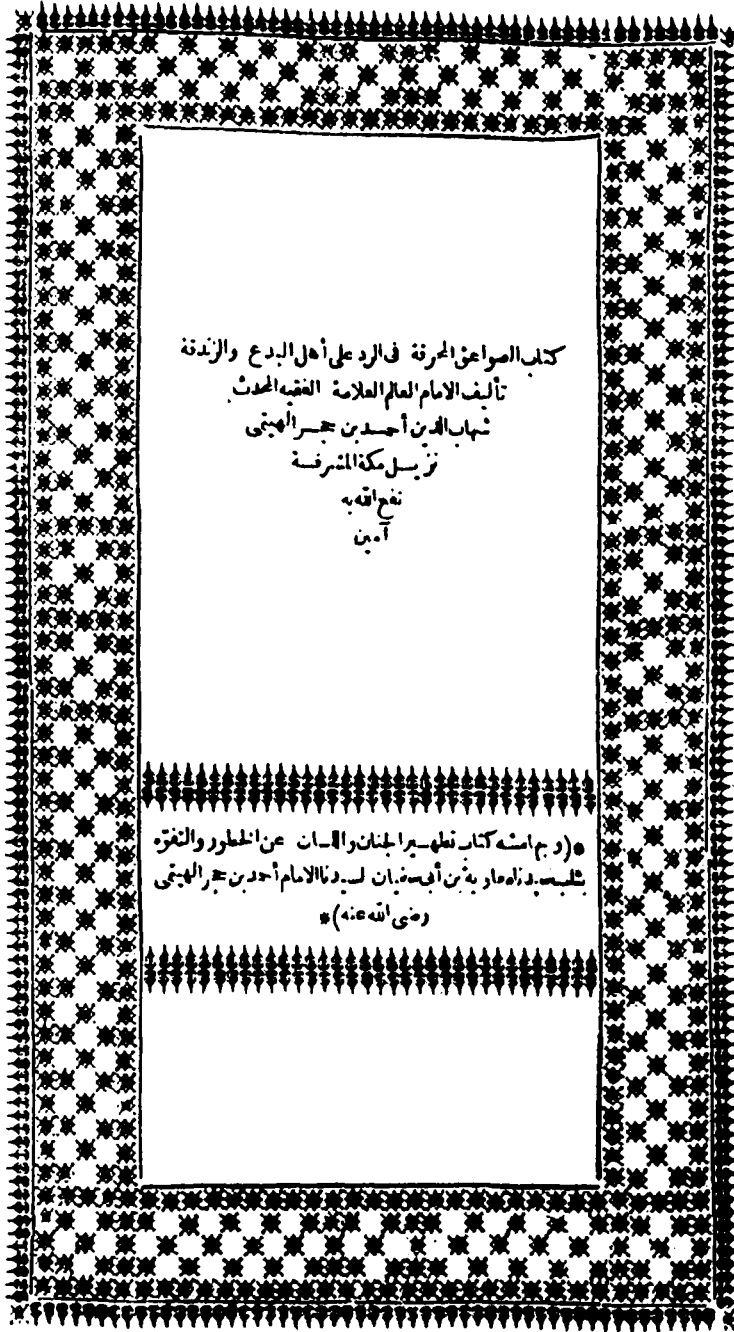 كتاب الصواعق المحرقة فى الرد على أهل البدع والزندقة
تأليف الامام العالم العلامة الفقيه المحدث
شهاب الدين أحمد بن حجر الهيتمى
نزيل مكة المشرفة
نفع الله به
آمين
*(وبهامشه كتاب تطهير الجنان واللسان عن الخطور والتفوّه
بثلب سيدنا معاوية بن أبى سفيان لسيدنا الامام أحمد بن حجر الهيتمى
رضى الله عنه)*